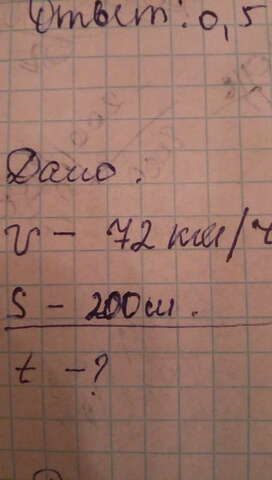 Ответ: 0,5
Дано:
V - 72 км/ч
S - 200м.
t - ?